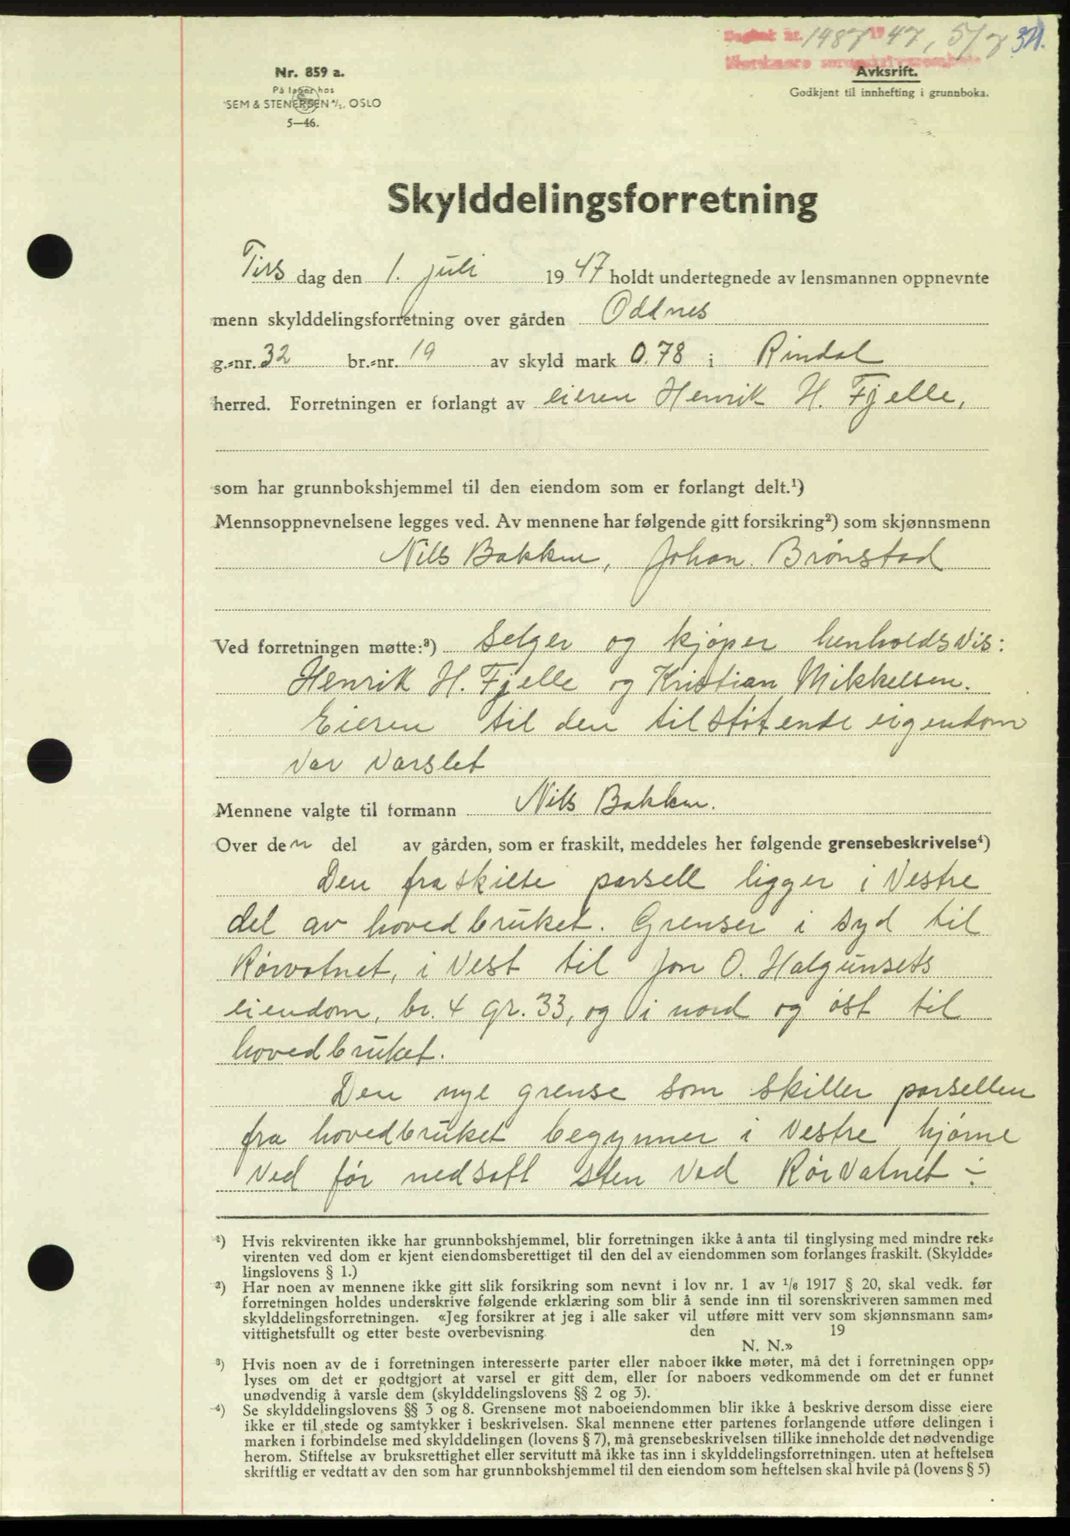 Dagbok nr. 1487 1947, 5/7 34.
Nr. 859 a.
På lager hos
SEM & STENERSEN A/S, OSLO
5—46.
Avskrift.
Godkjent til innhefting i grunnboka.
Skylddelingsforretning
Tirs dag den 1. juli 1947 holdt undertegnede av lensmannen oppnevnte
menn skylddelingsforretning over gården Oddnes
g.-nr. 32 br.-nr. 19 av skyld mark 0.78 i Rindal
herred. Forretningen er forlangt av eieren Henrik H. Fjelle,
som har grunnbokshjemmel til den eiendom som er forlangt delt.¹)
Mennsoppnevnelsene legges ved. Av mennene har følgende gitt forsikring²) som skjønnsmenn
Nils Bakken, Johan Brønstad
Ved forretningen møtte:³) Selger og kjøper henholdsvis:
Henrik H. Fjelle og Kristian Mikkelsen.
Eieren til den tilstøtende eigendom
var varslet
Mennene valgte til formann Nils Bakken.
Over den del av gården, som er fraskilt, meddeles her følgende grensebeskrivelse⁴)
Den fraskilte parsell ligger i Vestre
del av hovedbruket. Grenser i syd til
Rørvatnet, i Vest til Jon O. Halgunsets
eiendom, br. 4 gr. 33, og i nord og øst til
hovedbruket.
Den nye grense som skiller parsellen
fra hovedbruket begynner i Vestre hjørne
ved før nedsatt sten ved Rørvatnet ÷
¹) Hvis rekvirenten ikke har grunnbokshjemmel, blir forretningen ikke å anta til tinglysing med mindre rek-
virenten ved dom er kjent eiendomsberettiget til den del av eiendommen som forlanges fraskilt. (Skyldde-
lingslovens § 1.)
²) Har noen av mennene ikke gitt slik forsikring som nevnt i lov nr. 1 av 1/6 1917 § 20, skal vedk. før
forretningen holdes underskrive følgende erklæring som blir å sende inn til sorenskriveren sammen med
skylddelingsforretningen. «Jeg forsikrer at jeg i alle saker vil utføre mitt verv som skjønnsmann sam-
vittighetsfullt og etter beste overbevisning. den 19
N. N.»
³) Hvis noen av de i forretningen interesserte parter eller naboer ikke møter, må det i forretningen opp-
lyses om det er godtgjort at varsel er gitt dem, eller for naboers vedkommende om det er funnet
unødvendig å varsle dem (skylddelingslovens §§ 2 og 3).
⁴) Se skylddelingslovens §§ 3 og 8. Grensene mot naboeiendommen blir ikke å beskrive dersom disse eiere
ikke er til stede og samtykker i beskrivelsen. Skal mennene etter partenes forlangende utføre delingen i
marken i forbindelse med skylddelingen (lovens § 7), må grensebeskrivelsen tillike inneholde det nødvendige
herom. Stiftelse av bruksrettighet eller servitutt må ikke tas inn i skylddelingsforretningen. uten at heftelsen
skriftlig er vedtatt av den som har grunnbokshjemmel til den eiendom som heftelsen skal hvile på (lovens § 5)